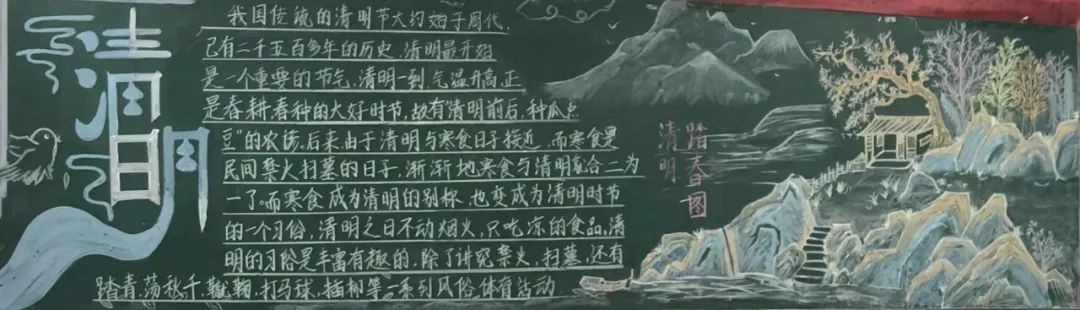 清明
我国传统的清明节大约始于周代,
已有二千五百多年的历史,清明最开始
是一个重要的节气,清明一到气温升高,正
是春耕春种的大好时节,故有清明前后,种瓜点
豆"的农谚,后来由于清明与寒食日子接近,而寒食是
民间禁火扫墓的日子,渐渐地寒食与清明就合二为
一了,而寒食成为清明的别称,也变成为清明时节
的一个习俗,清明之日不动烟火,只吃凉的食品,清
明的习俗是丰富有趣的,除了讲究禁火、扫墓,还有
踏青,荡秋千,蹴鞠,打马球,插柳等一系列风俗体育活动
清明
踏春图